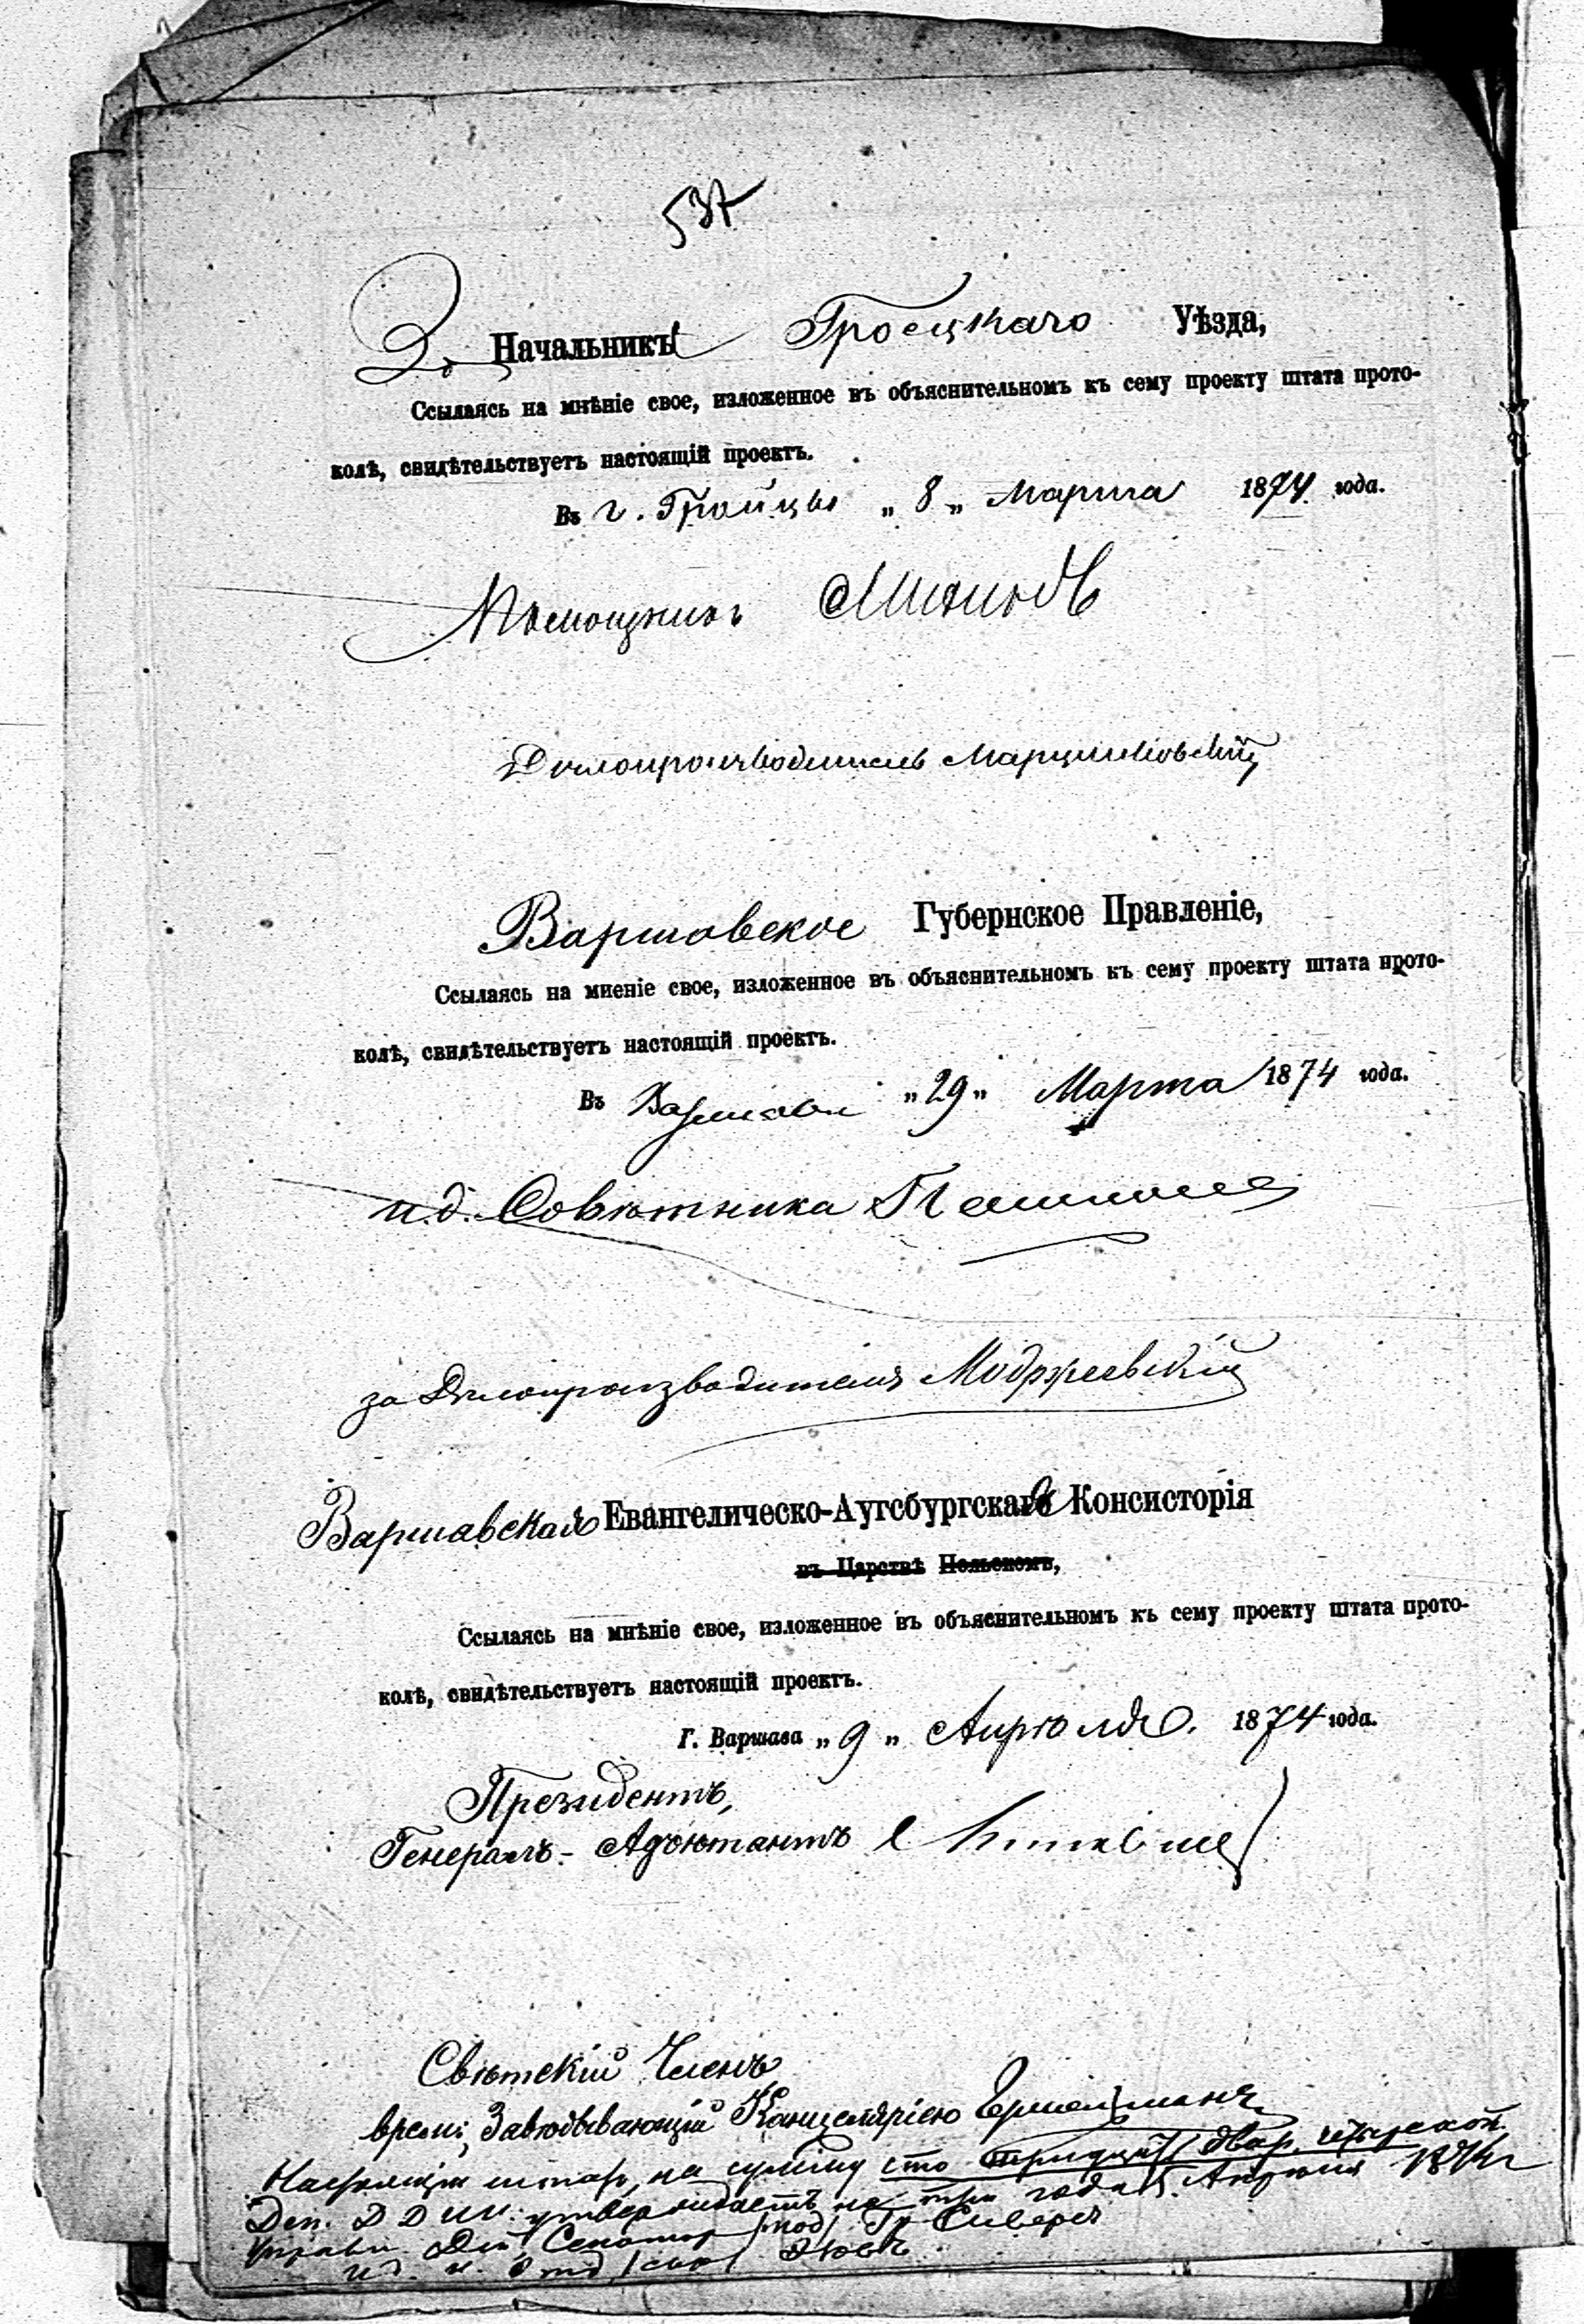 537
За Начальника Гроецкаго Уѣзда,
Ссылаясь на мнѣніе свое, изложенное въ объяснительномъ къ сему проекту штата прото-
колѣ, свидѣтельствуетъ настоящій проектъ.
Въ г. Гройцы „ 8 „ Марта 1874 года.
Помощникъ
Дѣлопроизводитель Марцинковскій
Варшавское Губернское Правленіе,
Ссылаясь на мнeніе свое, изложенное въ объяснительномъ къ сему проекту штата прото-
колѣ, свидѣтельствуетъ настоящій проектъ.
Въ Варшавѣ „ 29 „ Марта 1874 года.
и.д. Совѣтника
за Дѣлопроизводителя Моджеевскій
Варшавская Евангелическо-Аугсбургская Консисторія
въ Царствѣ Польскомъ,
Ссылаясь на мнѣніе свое, изложенное въ объяснительномъ къ сему проекту штата прото-
колѣ, свидѣтельствуетъ настоящій проектъ.
Г. Варшава „ 9 „ Апрѣля 1874 года.
Президентъ,
Генералъ-Адъютантъ
Свѣтскій Членъ,
врем: Завѣдывающій Канцеляріею
Настоящій штатъ, на сумму сто тридцать два р.
Деп. Д Д И И: утверждаетъ на три года. Апрѣля 1874 г
Управл. Сенаторъ /под/ Гр Сиверсъ
и. д. н. Отд.